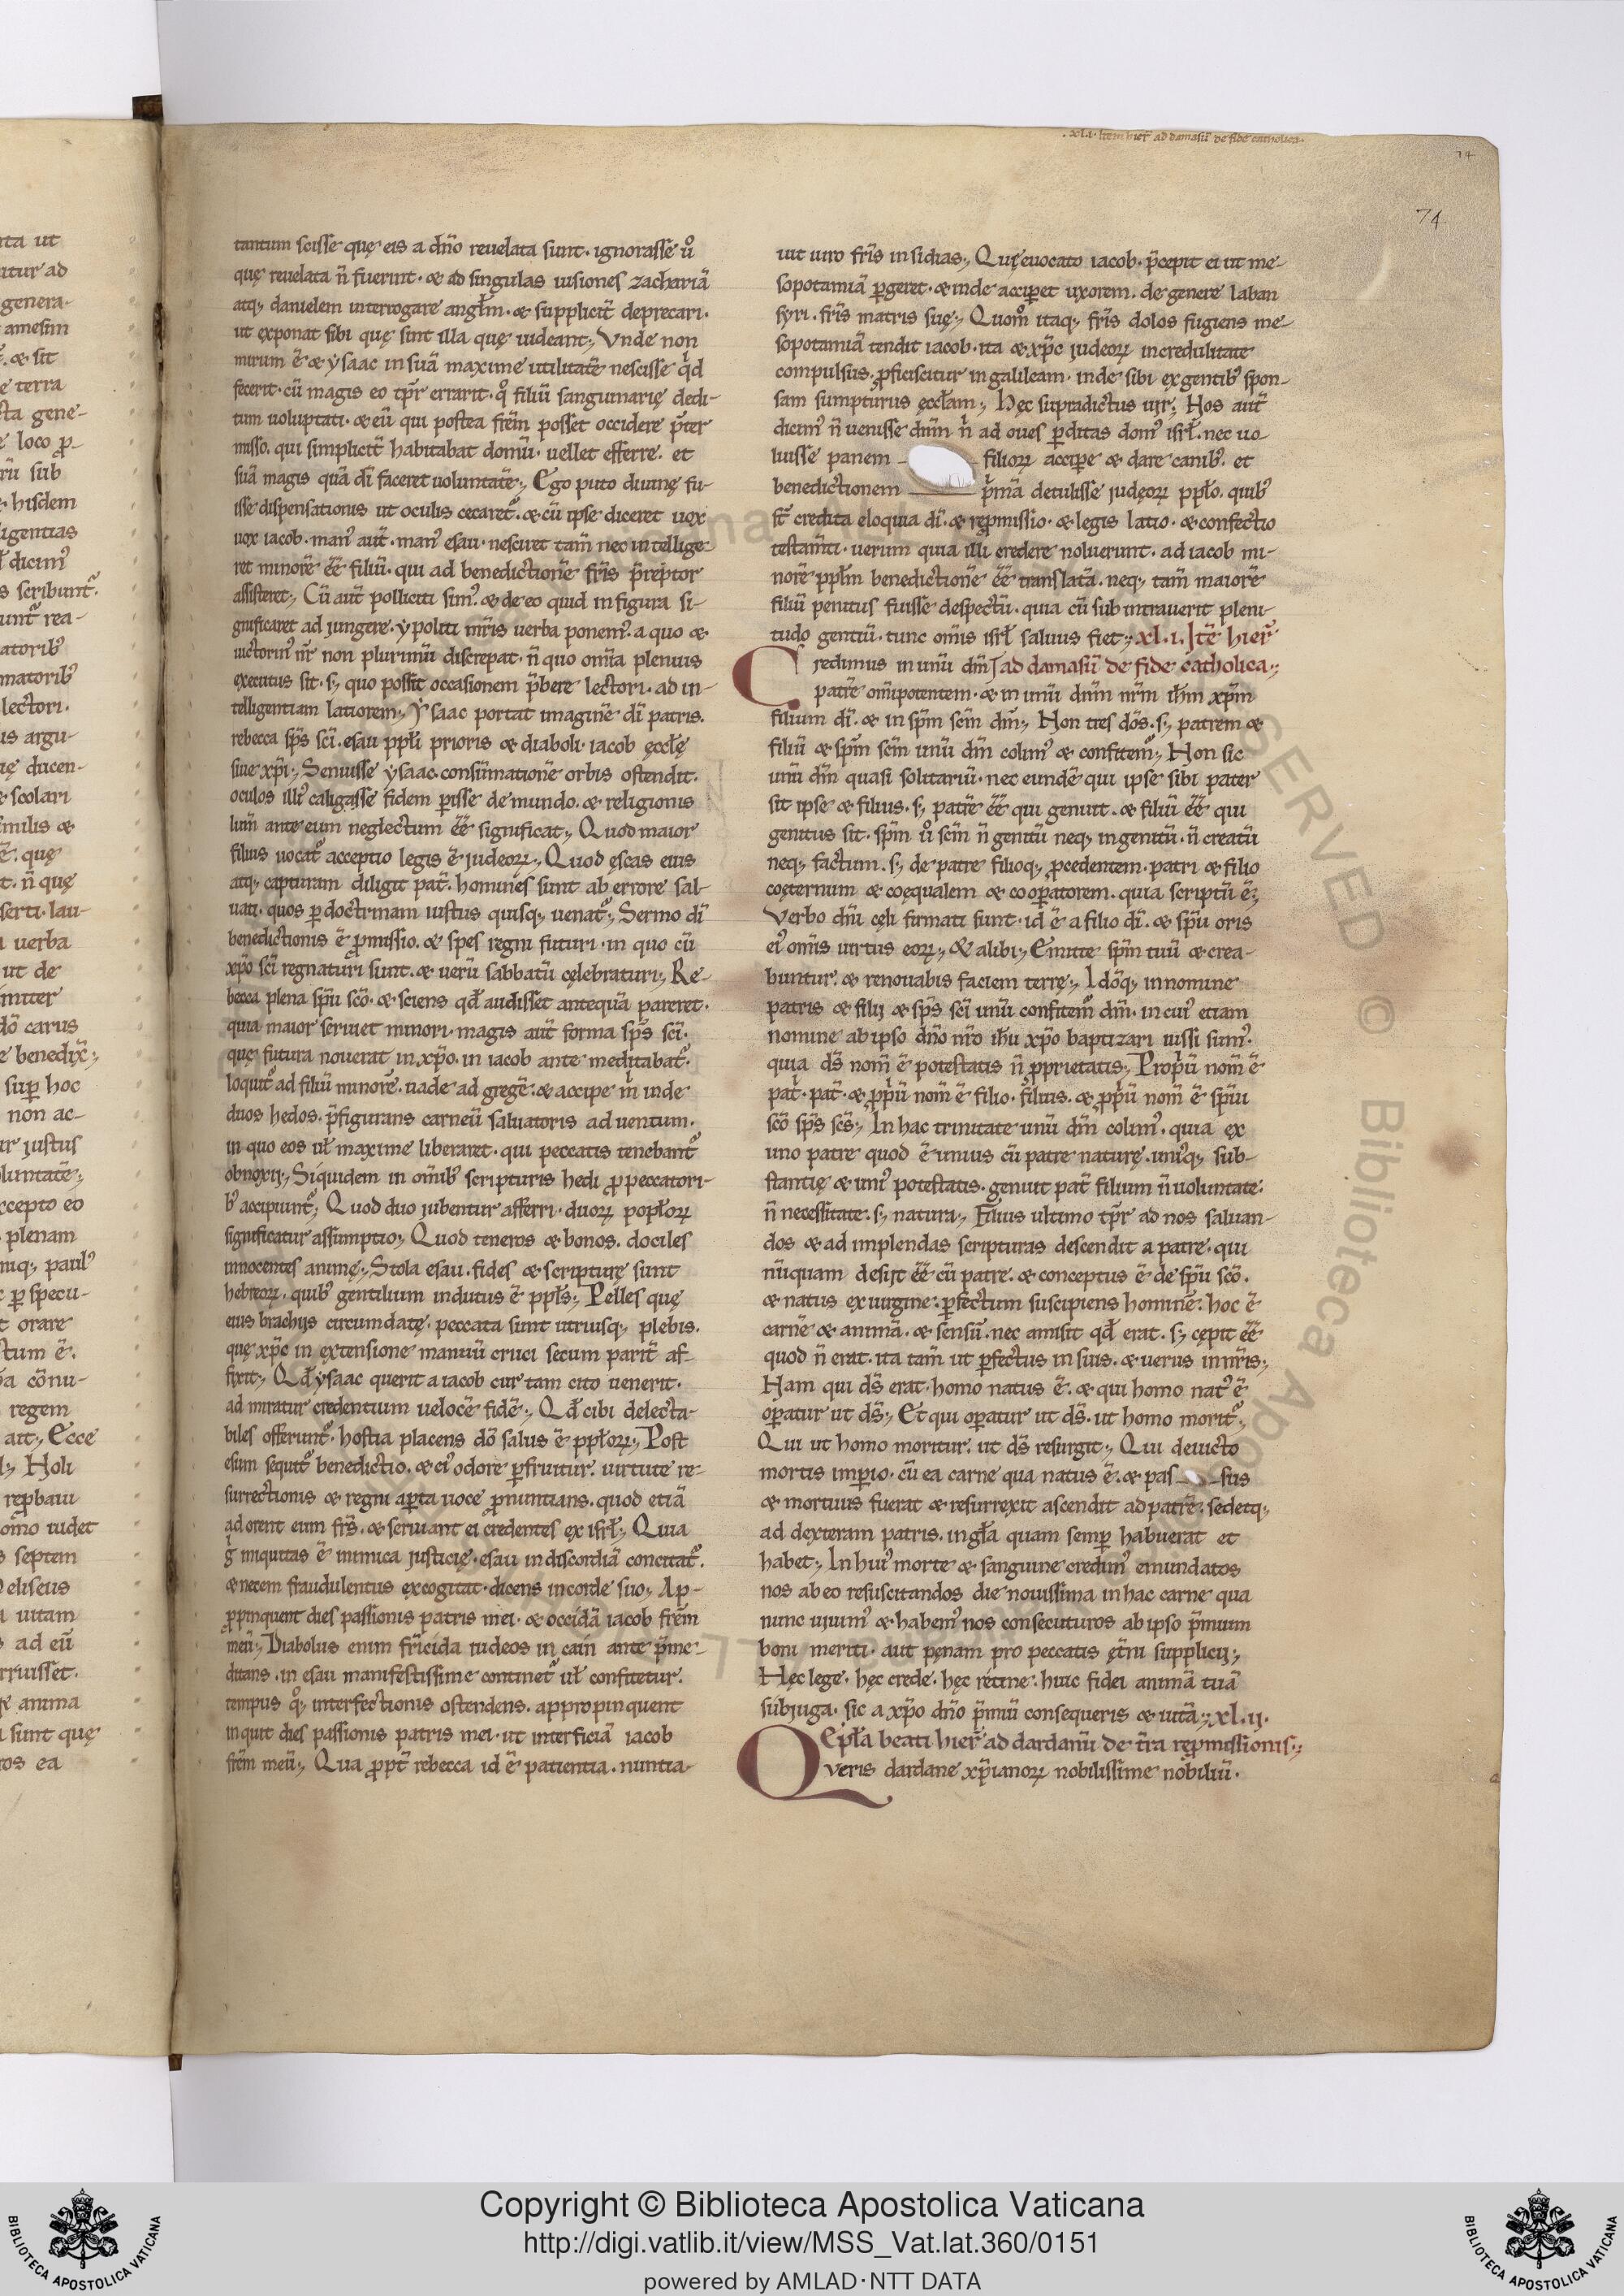 .xli. Item hier̄ ad damasū de fide catholica.
74
74
tantum scisse quę eis a dño reuelata sunt. ignorasse ů
quę reuelata ñ fuerint. & ad singulas uisiones zachariā
atq; danielem interrogare angłm. & suppliciť deprecari.
ut exponat sibi quę sint illa quę uideant; Vnde non
mirum ē & ysaac in suā maxime utilitatē nescisse qd
fecerit. cū magis eo tp̄r errarit. qͦ filiū sanguinarię dedi-
tum uoluptati. & eū qui postea frēm posset occidere p̄ter
misso. qui simpliciť habitabat domū. uellet efferre. et
suā magis quā dī faceret uoluntatē; Ego puto diuinę fu-
isse dispensationis ut oculis cecaret᷑. & cū ipse diceret uox
uox iacob. man᾽ auť. man᾽ esau. nesciret tam̄ nec intellige-
ret minorē eē filiū. qui ad benedictionē fr̄is p̄reptor
assisteret; Cū auť polliciti sim᾽. & de eo quid in figura si-
gnificaret ad jungere. ypoliti mr̄is uerba ponem᾽. a quo &
uictorin᾽ nr̄ non plurimū discrepat. ñ quo om̄ia plenius
executus sit. s; quo possit occasionem p̄bere lectori. ad in-
telligentiam latiorem; Ysaac portat imaginē dī patris.
rebecca sp̄s scī. esau pp̄li prioris & diaboli. iacob ęccłę
siue xp̄i; Senuisse ysaac. consūmationē orbis ostendit.
oculos illi᾽ caligasse fidem pisse de mundo. & religionis
lum̄ ante eum neglectum eē significat; Quod maior
filius uocat᷑ acceptio legis ē judeoꝝ; Quod ęscas eius
atq; capturam diligit pať. homines sunt ab errore sal-
uati. quos p doctrinam iustus quisq; uenat᷑; Sermo dī
benedictionis ē pmissio. & spes regni futuri. in quo cū
xp̄o scī regnaturi sunt. & uerū sabbatū cęlebraturi; Re-
becca plena sp̄u scō. & sciens qđ audisset antequā pareret.
quia maior seruiet minori. magis auť forma sp̄s scī.
quę futura nouerat in xp̄o. in iacob ante meditabat᷑.
loquit᷑ ad filiū minorē. uade ad gregē. & accipe m̄ inde
duos hedos. p̄figurans carneū saluatoris ad uentum.
in quo eos uł maxime liberaret. qui peccatis tenebant᷑
obnoxij; Siquidem in om̄ib᾽ scripturis hedi p peccatori-
b᾽ accipiunt᷑; Quod duo jubentur afferri. duoꝝ popłoꝝ
significatur assumptio; Quod teneros & bonos. dociles
innocentes animę; Stola esau. fides & scripturę sunt
hebreoꝝ. quib᾽ gentilium indutus ē pp̄ls; Pelles quę
eius brachijs circumdatę. peccata sunt utriusq; plebis.
quę xp̄c in extensione manuū cruci secum pariť af-
fixit; Qđ ysaac querit a iacob cur tam cito uenerit.
ad miratur credentium uelocē fidē; Qđ cibi delecta-
biles offerunt᷑. hostia placens dō salus ē pp̄łoꝝ; Post
esum sequit᷑ benedictio. & ei᾽ odore pfruitur. uirtute re-
surrectionis & regni apta uoce pnuntians. quod etiā
ad orent eum fr̄s. & seruiant ei credentes ex isrł; Quia
g̊ iniquitas ē inimica justicię. esau in discordiā concitat᷑.
& necem fraudulentus excogitat. dicens in corde suo; Ap-
ppinquent dies passionis patris mei. & occidā iacob frēm
meū; Diabolus enim fr̄icida iudeos in cain ante p̄me-
ditans. in esau manifestissime continet᷑ uł confitetur.
tempus qͦ; interfectionis ostendens. appropinquent
inquit dies passionis patris mei. ut interficiā iacob
frēm meū; Qua ppť rebecca id ē patientia. nuntia-
uit uiro fr̄is insidias; Quę euocato iacob. p̄cepit ei ut me-
sopotamiā pgeret. & inde accipet uxorem. de genere laban
syri. fr̄is matris suę; Quom̊ itaq; fr̄is dolos fugiens me-
sopotamiā tendit iacob. ita & xp̄c judeoꝝ incredulitate
compulsus. pficiscitur in galileam. inde sibi ex gentib᾽ spon-
sam sumpturus ęccłam; Hęc supradictus uir; Nos auť
dicim᾽ ñ uenisse dnm̄ ñ ad oues pditas dom᾽ isrł. nec uo-
luisse panem filioꝝ accipe & dare canib᾽. et
benedictionem p̄mā detulisse judęoꝝ pp̄lo. quib᾽
st̄ credita eloquia dī. & repmissio. & legis latio. & confectio
testam̄ti. uerum quia illi credere noluerunt. ad iacob mi-
norē pp̄lm benedictionē eē translatā. neq; tam̄ maiorē
filiū penitus fuisse despectū. quia cū sub intrauerit pleni-
tudo gentiū. tunc om̄is isrł saluus fiet; xl.i. Itē hier̄
Credimus in unū dm̄ ad damasū de fide catholica;
patrē om̄ipotentem. & in unū dnm̄ nr̄m ihm̄ xp̄m
filium dī. & in sp̄m scm̄ dm̄; Non tres dōs. s; patrem &
filiū & sp̄m scm̄ unū dm̄ colim᾽ & confitem᷑; Non sic
unū dm̄ quasi solitariū. nec eundē qui ipse sibi pater
sit ipse & filius. s; patrē eē qui genuit. & filiū eē qui
genitus sit. sp̄m ů scm̄ ñ genitū neq; ingenitū. ñ creatū
neq; factum. s; de patre filioq; pcedentem. patri & filio
coęternum & coęqualem & coopatorem. quia scriptū ē;
Verbo dn̄i cęli firmati sunt. id ē a filio dī. & sp̄u oris
ei᾽ om̄is uirtus eoꝝ; & alibi; Emitte sp̄m tuū & crea-
buntur. & renouabis faciem terrę; Idōq; in nomine
patris & filij & sp̄s scī unū confitem᷑ dm̄. in cui᾽ etiam
nomine ab ipso dño nr̄o ihu xp̄o baptizari iussi sum᾽.
quia dš nom̄ ē potestatis ñ pprietatis; Propiū nom̄ ē
pať. pať. & ppiū nom̄ ē filio. filius. & ppiū nom̄ ē sp̄iu
scō sp̄s scš; In hac trinitate unū dm̄ colim᾽. quia ex
uno patre quod ē unius cū patre naturę. uni᾽q; sub-
stantię & uni᾽ potestatis. genuit pať filium ñ uoluntate.
ñ necessitate. s; natura; Filius ultimo tp̄r ad nos saluan-
dos & ad implendas scripturas descendit a patre. qui
nūquam desijt eē cū patre. & conceptus ē de sp̄u scō.
& natus ex uirgine. pfectum suscipiens hominē. hoc ē
carnē & animā. & sensū. nec amisit qđ erat. s; cępit eē
quod ñ erat. ita tam̄ ut pfectus in suis. & uerus in nr̄is;
Nam qui dš erat. homo natus ē. & qui homo nat᾽ ē
opatur ut dš; Et qui opatur ut dš. ut homo morit᷑;
Qui ut homo moritur. ut dš resurgit; Qui deuicto
mortis impio. cū ea carne qua natus ē. & pas sus
& mortuus fuerat & resurrexit ascendit ad patrē. sedetq;
ad dexteram patris. in głā quam semp habuerat et
habet; In hui᾽ morte & sanguine credim᾽ emundatos
nos ab eo resuscitandos die nouissima in hac carne qua
nunc uiuim᾽ & habem᾽ nos consecuturos ab ipso p̄mium
boni meriti. aut pęnam pro peccatis ęt̄ni supplicij;
Hęc lege. hęc crede. hęc retine. huic fidei animā tuā
subjuga. sic a xp̄o dño p̄miū consequeris & uitā; xl.ij.
Epła beati hier̄ ad dardanū de tr̄a repmissionis;
Queris dardane xp̄ianoꝝ nobilissime nobiliū.
Copyright © Biblioteca Apostolica Vaticana
http://digi.vatlib.it/view/MSS_Vat.lat.360/0151
powered by AMLAD·NTT DATA
BIBLIOTECA APOSTOLICA VATICANA
BIBLIOTECA APOSTOLICA VATICANA